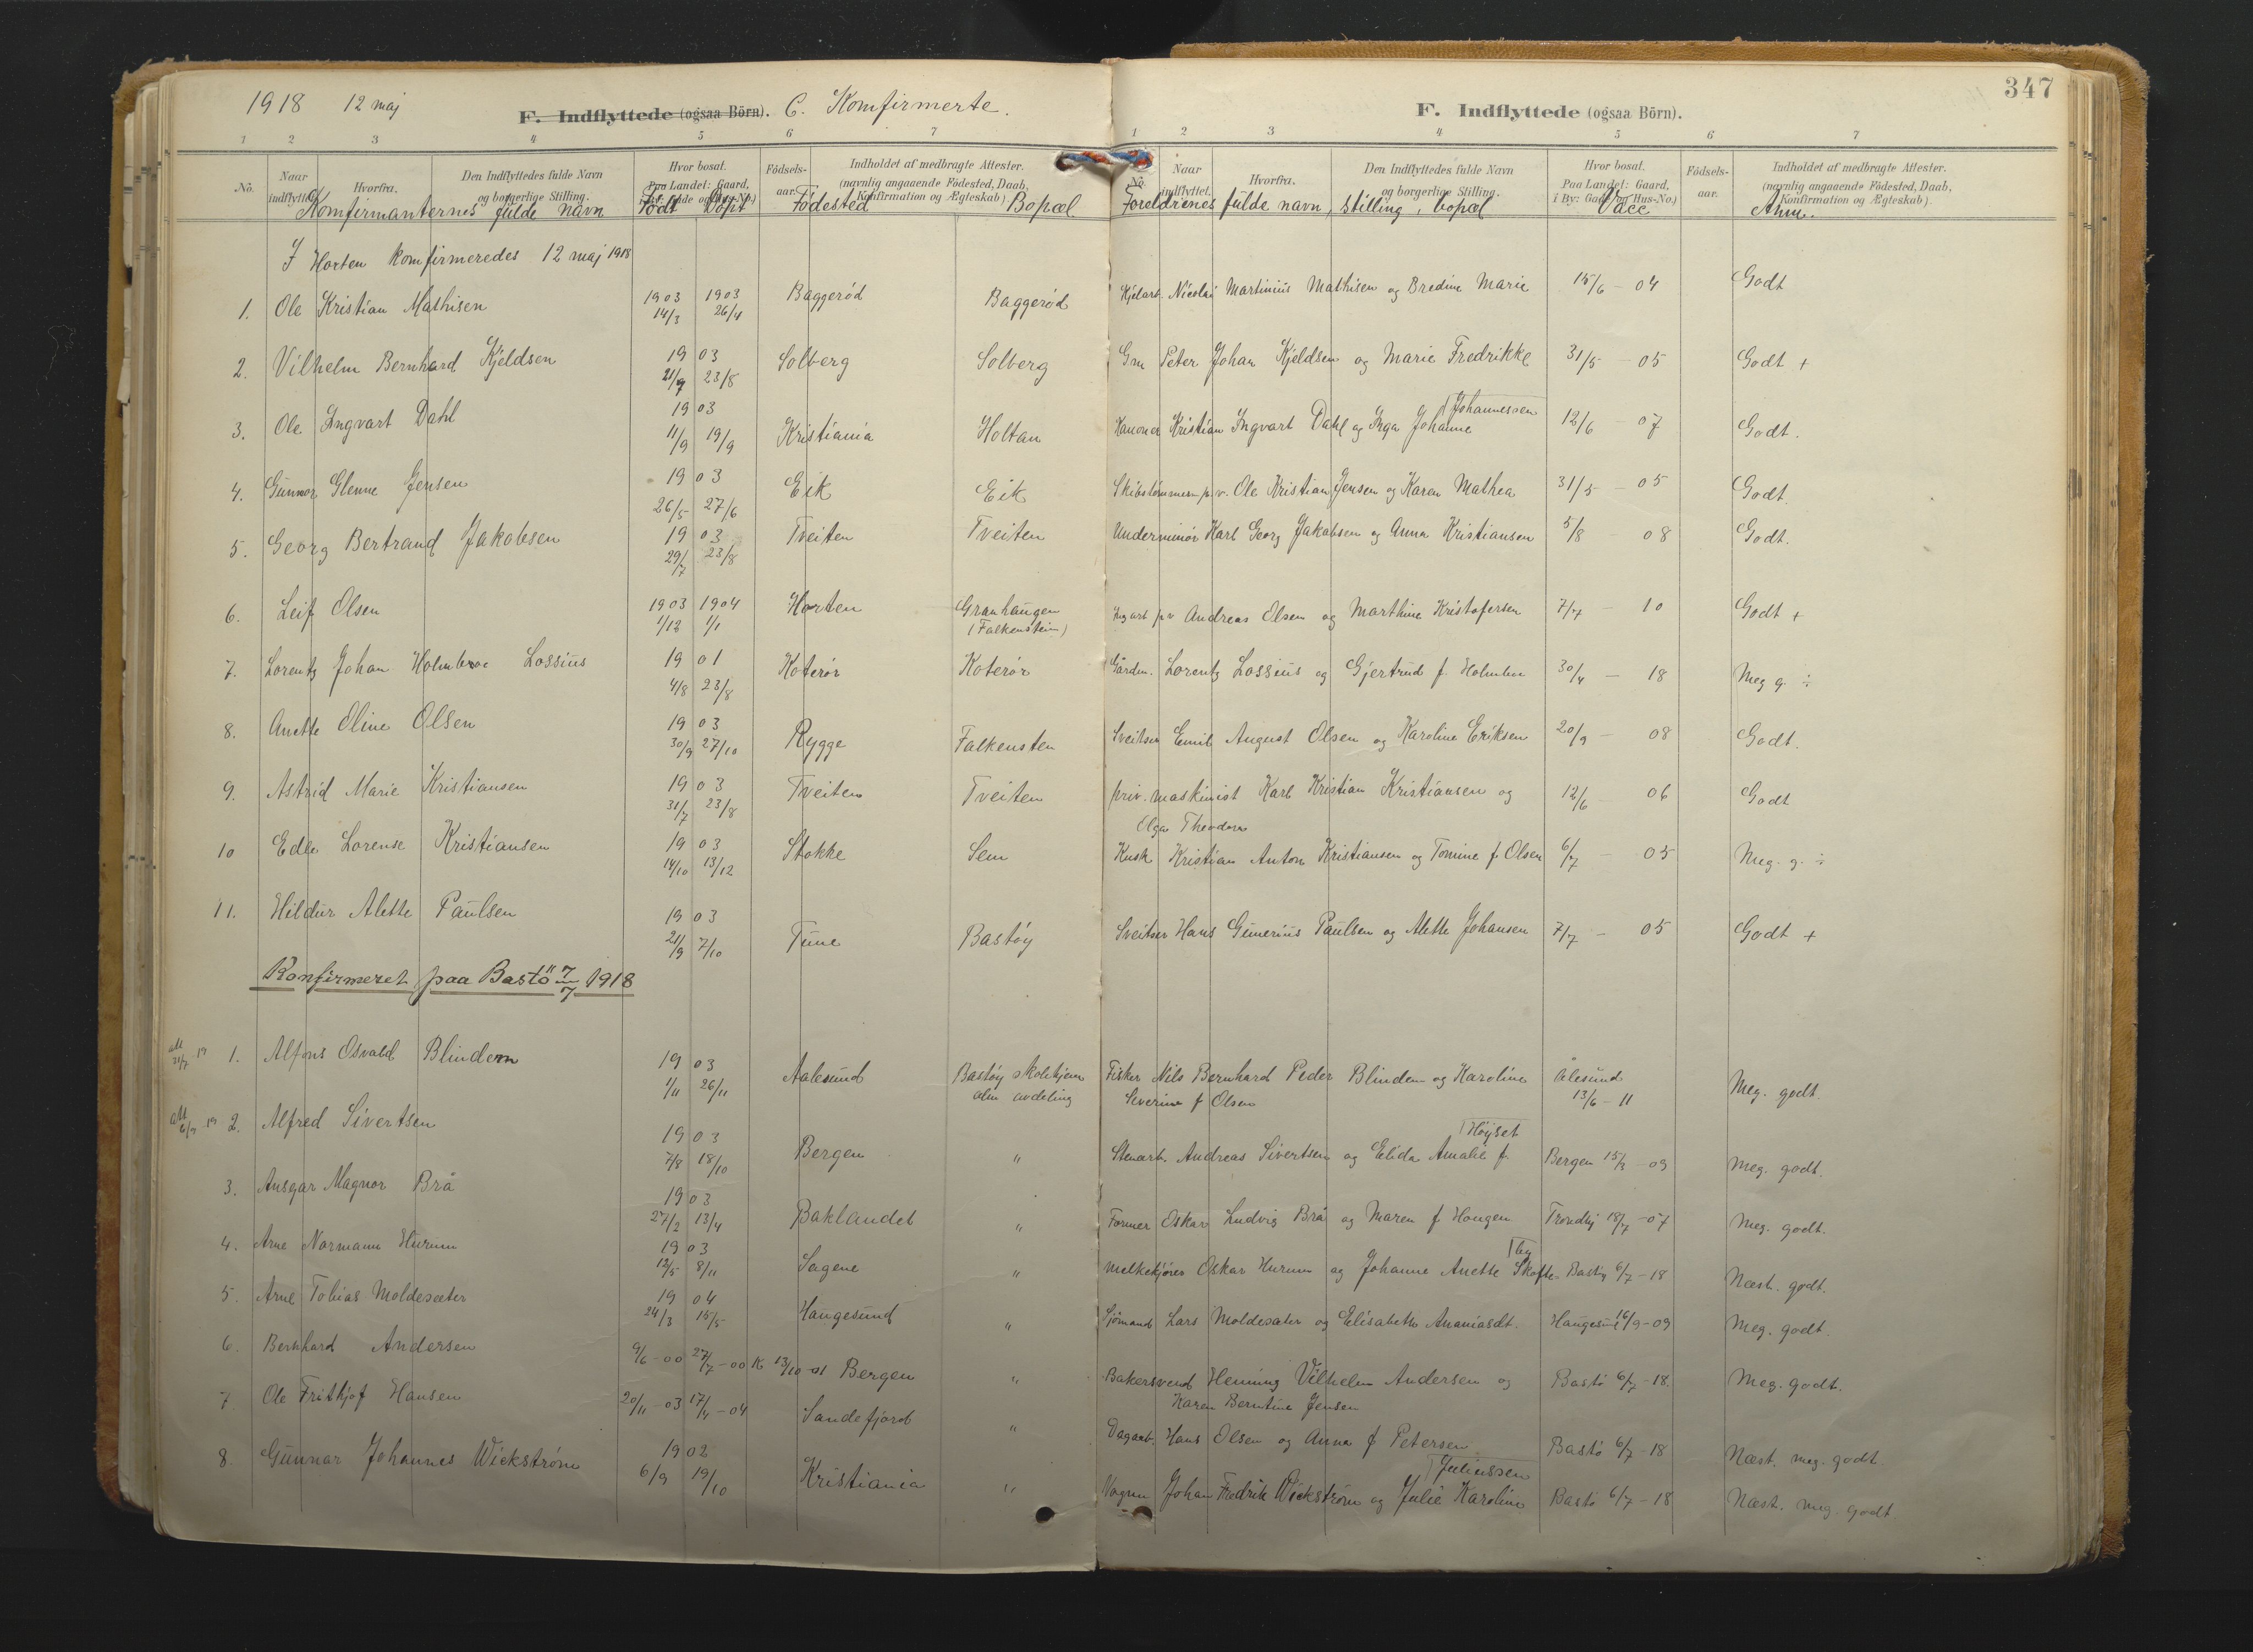 347
1918 12 maj F. Indflyttede (ogsaa Börn). C. Komfirmerte.
F. Indflyttede (ogsaa Börn).
1 2 3 4 5 6 7
1 2 3 4 5 6 7
No. Naar indflyttet. Hvorfra. Den Indflyttedes fulde Navn og borgerlige Stilling. Hvor bosat. Paa Landet: Gaard, i By: Gade og Hus-No.) Födsels-aar. Indholdet af medbragte Attester. (navnlig angaaende Födested, Daab, Konfirmation og Ægteskab)
No. Naar indflyttet. Hvorfra. Den Indflyttedes fulde Navn og borgerlige Stilling. Hvor bosat. Paa Landet: Gaard, i By: Gade og Hus-No.) Födsels-aar. Indholdet af medbragte Attester. (navnlig angaaende Födested, Daab, Konfirmation og Ægteskab)
Komfirmanternes fulde navn Födt Döpt Födested Bopæl Foreldrenes fulde navn, stilling, bopæl Vacc Anm.
I Horten komfirmeredes 12 maj 1918
1. Ole Kristian Mathisen 1903 14/3 1903 26/4 Baggeröd Baggeröd Nicolai Martinius Mathisen og Bredine Marie 15/6 - 04 Godt
2. Vilhelm Bernhard Kjeldsen 1903 23/8 Solberg Solberg Gm Peter Johan Kjeldsen og Marie Fredrikke 31/5 - 05 Godt +
3. Ole Ingvart Dahl 1903 11/9 19/9 Kristiania Holtan Kanoner Kristian Ingvart Dahl og Inga Johanne Johannessen 12/6 - 07 Godt.
4. Gunnar Glenne Jensen 1903 26/5 27/6 Eik Eik Skibstømmerm p.v. Ole Kristian Jensen og Karen Mathea 31/5 - 05 Godt.
5. Georg Bertrand Jakobsen 1903 29/7 23/8 Tveiten Tveiten Underminör Karl Georg Jakobsen og Anna Kristiansen 5/8 - 08 Godt.
6. Leif Olsen 1903 1/12 1904 1/1 Horten Granhaugen
(Falkenstein) Andreas Olsen og Marthine Kristofersen 7/7 - 10 Godt +
7. Lorentz Johan Holmboe Lossius 1901 4/8 23/8 Koterör Koterör Garden. Lorentz Lossius og Gjertrud f. Holmboe 30/4 - 18 Meg g. ÷
8. Anette Oline Olsen 1903 30/9 27/10 Rygge Falkensten Sveitser Emil August Olsen og Karoline Eriksen 20/9 - 08 Godt.
9. Astrid Marie Kristiansen 1903 31/7 23/8 Tveiten Tveiten priv. maskinist Karl Kristian Kristiansen og
Olga Theodora 12/6 - 06 Godt
10 Edle Lorense Kristiansen 1903 14/10 13/12 Stokke Sem Kusk Kristian Anton Kristiansen og Tomine f. Olsen 6/7 - 05 Meg. g. ÷
11. Hildur Alette Paulsen 1903 21/9 7/10 Tune Bastöy Sveitser Hans Gunerius Paulsen og Alette Johansen 7/7 - 05 Godt +
Konfirmeret paa Bastö 7/7 1918
att 21/7 19 1. Alfons Osvald Blindem 1903 1/11 26/11 Aalesund Bastöy skolehjem
alm avdeling Fisker Nils Bernhard Peder Blindem og Karoline
Severine f Olsen Ålesund
13/6 - 11 Meg. godt.
att 19 2. Alfred Sivertsen 1903 7/8 18/10 Bergen " Stenarb. Andreas Sivertsen og Elida Amalie f. Höyset Bergen 15/3 - 09 Meg. godt.
3. Ansgar Magnor Brå 1903 27/2 13/4 Baklandet " Former Oskar Ludvig Brå og Maren f Haugen Trondhj 18/7 - 07 Meg. godt.
4. Arne Normann Hurum 1903 12/5 8/11 Sagene " Melkekjörer Oskar Hurum og Johanne Anette Skofteby Bastö 6/7 - 18 Næst. godt.
5. Arne Tobias Moldesæter 1904 24/3 15/5 Haugesund " Sjömand Lars Moldesæter og Elisabeth Ananiasdt. Haugesund 16/9 - 09 Meg. godt.
6. Bernhard Andersen 9/6 - 00 27/7 - 00 K 13/10 - 01 Bergen " Bakersvend Henning Vilhelm Andersen og
Karen Berntine Jensen Bastö 6/7 - 18. Meg. godt.
7. Ole Fritkjof Hansen 20/11 - 03 17/4 - 04 Sandefjord " Dagarb. Hans Olsen og Anna f Petersen Bastö 6/7 - 18 Næst. meg. godt.
8. Gunnar Johannes Wickström 1902 6/9 19/10 Kristiania " Vognm Johan Fredrik Wickström og Julie Karoline Juliussen Bastö 6/7 - 18 Næst. meg. godt.